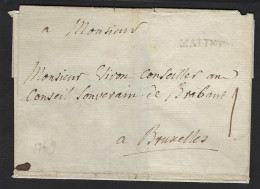 a Monsieur
Monsieur Viron Conseiller au
Conseil Souverain de Brabant
a Bruxelles